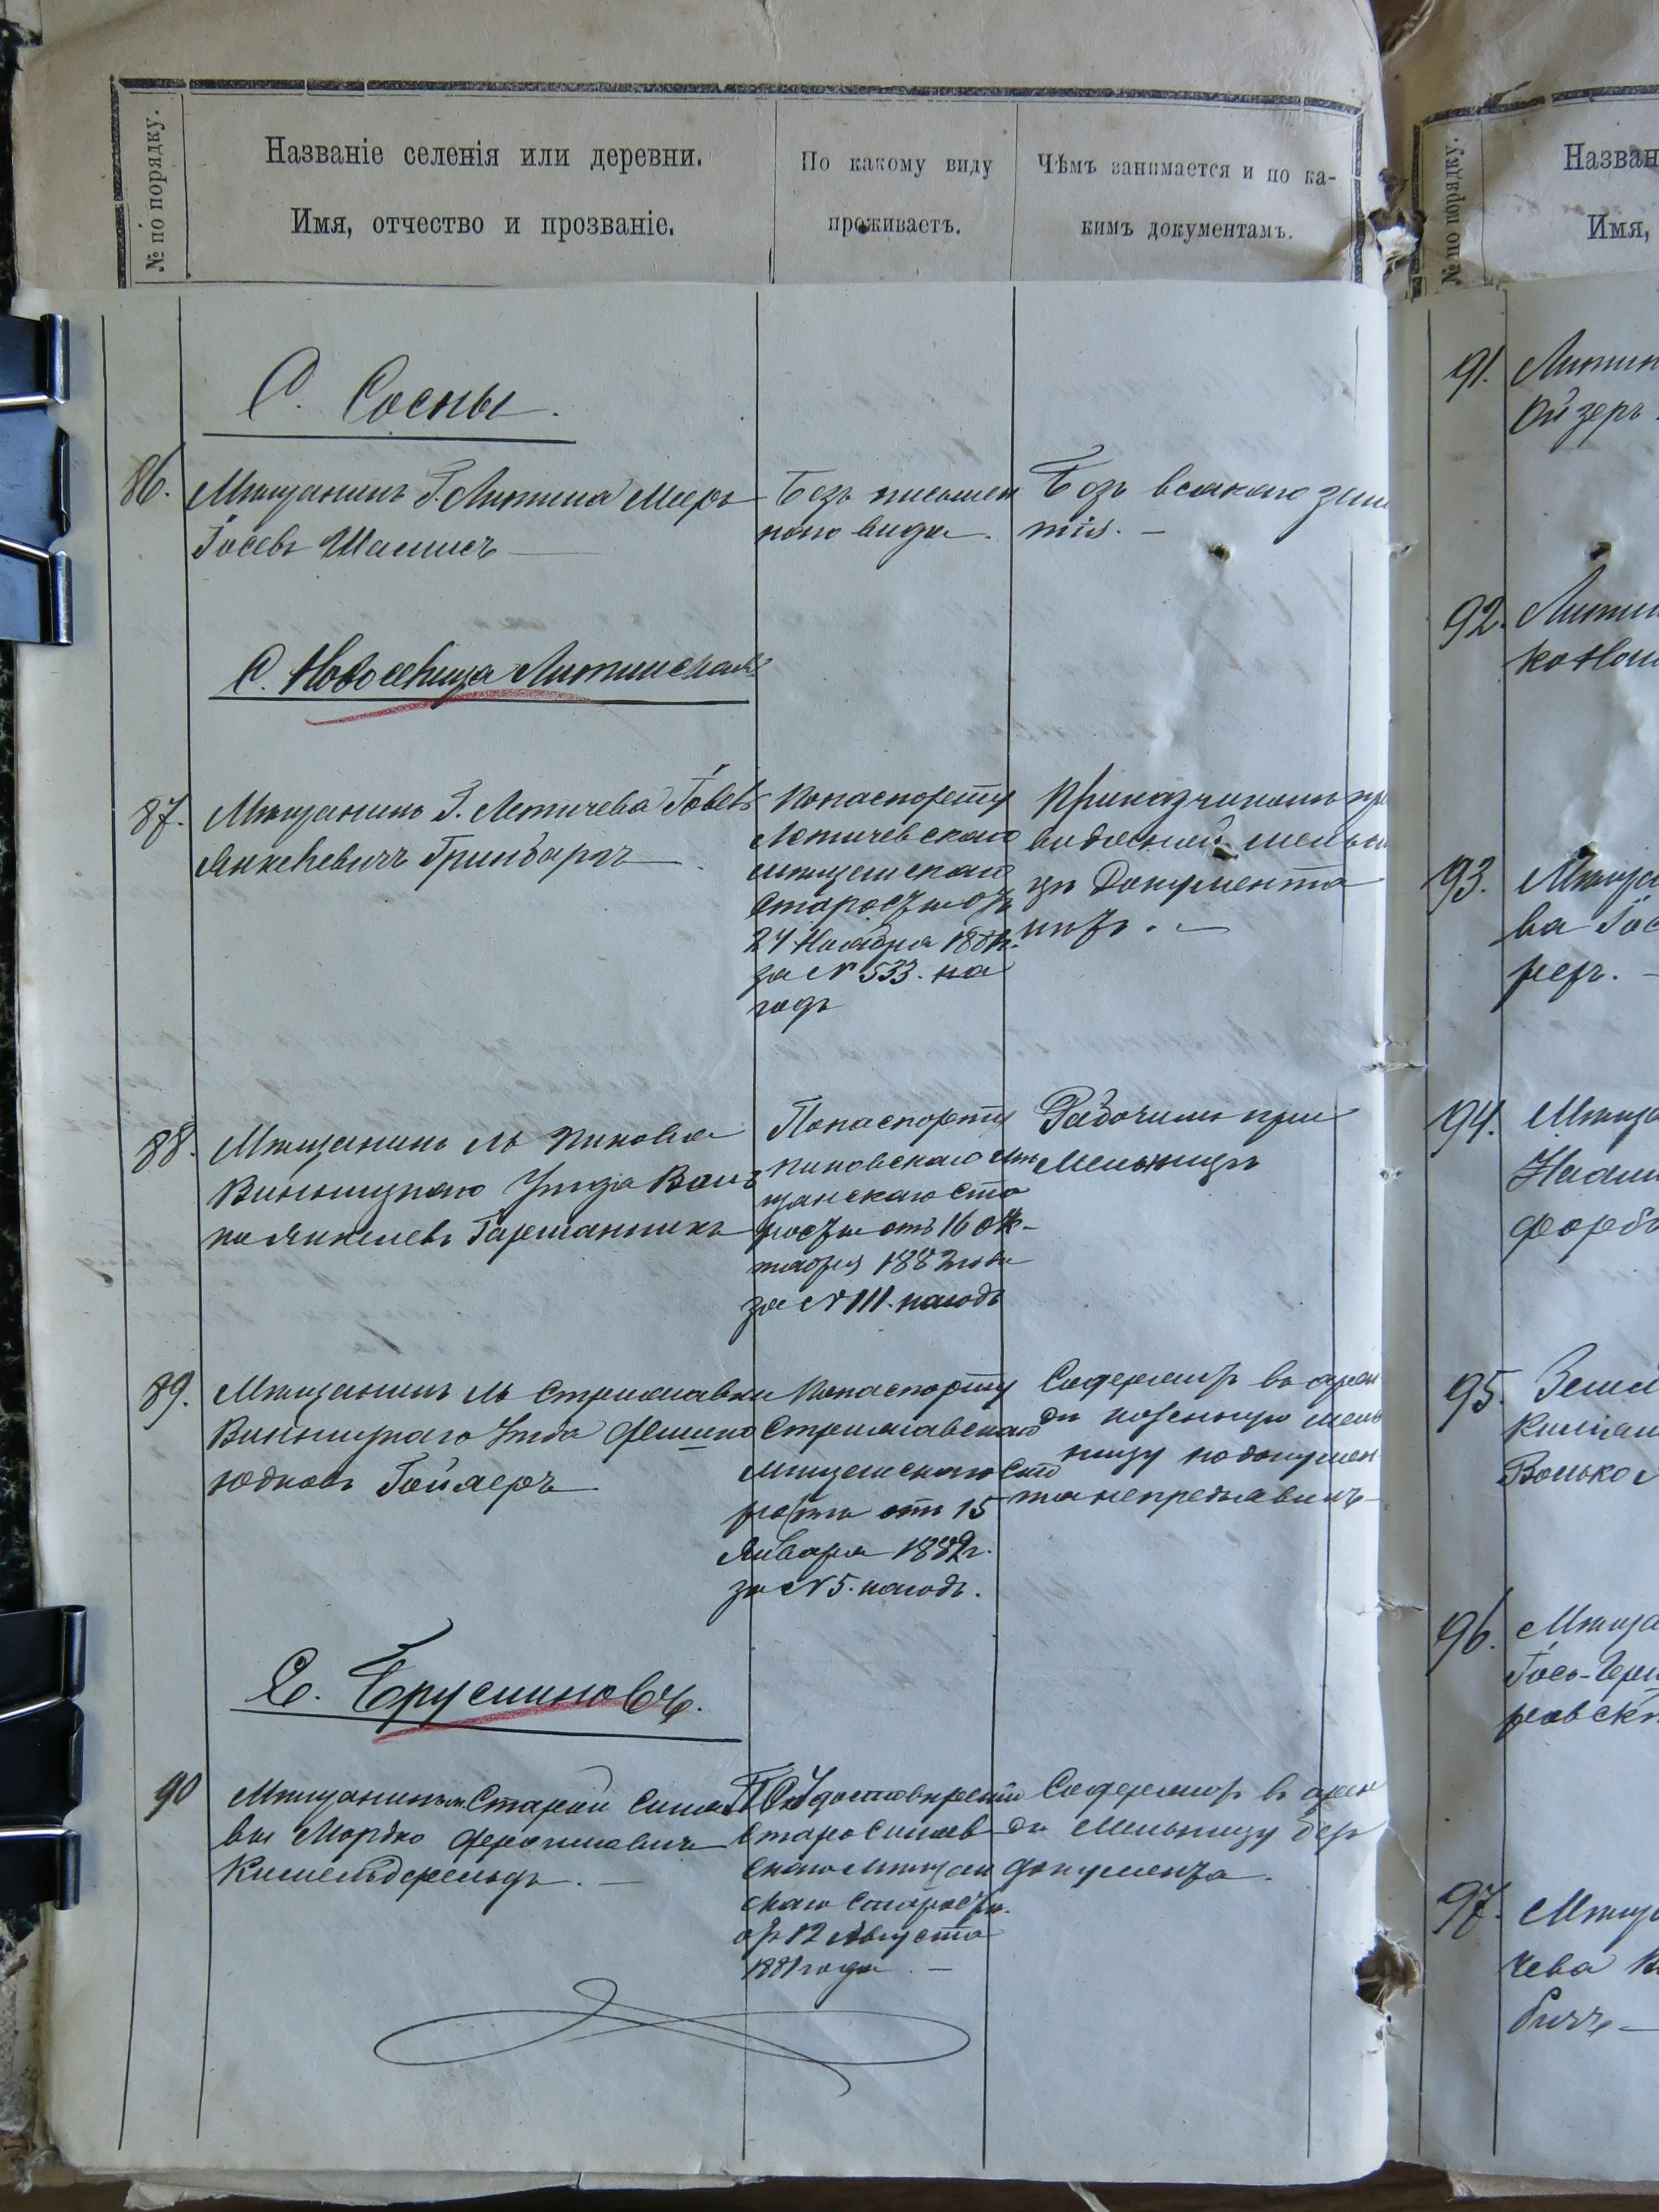 № по порядку.
Названіе селенія или деревни.
Имя, отчество и прозваніе.
По какому виду
проживаетъ.
Чѣмъ занимается и по ка-
кимъ документамъ.
С. Сосны.
86.
Мѣщанинъ Г. Литина Мееръ
Іосевъ Шамисъ
Безъ письмен
наго вида.
Безъ всякаго заня
тія. —
С. Новоселица Литинская
87.
Мѣщанинъ Г. Летичева Іосевъ
Янкелевичъ Гринбаргъ
Попаспорту
Летичевскаго
мѣщанскаго
Старосты отъ
24 Ноября
за № 533. на
годъ
Приказчикомъ при
водяной мельни
цѣ Документа
нѣтъ. —
88.
Мѣщанинъ М. Пикова
Винницкаго Уѣзда Воль
ко Янкелевъ
Попаспорту
Пиковскаго мѣ
щанскаго Ста
росты отъ 16 Ок-
тября 1882 года
за № 111. нагодъ
Рабочимъ при
Мельницѣ
89.
Мѣщанинъ М. Стрижавки
Винницкаго Уѣзда
Юдковъ Гойхеръ
Попаспорту
Стрижавскаго
Мѣщанскаго Ста
росты отъ 15
Января 1882 г.
за № 5. нагодъ.
Содержитъ въ арен
дѣ мель
ницу нодокумен
та непредъявилъ —
С. Брусиновъ.
90
Мѣщанинъ м. Старой Синя
вы Мордко
Кимельфельдъ. —
По Удостовѣренію
Старосиняв
скаго мѣщан
скаго Старосты.
отъ 12 Августа
1881 года. —
Содержитъ въ арен
дѣ Мельницу безъ
документа.
№ по порядку.
Назван
Имя,
91.
Литин
Ойзеръ
92.
Литин
93.
Мѣща
ва Іос
94.
Мѣща
95.
Волько
96.
Мѣща
97.
Мѣща
чева